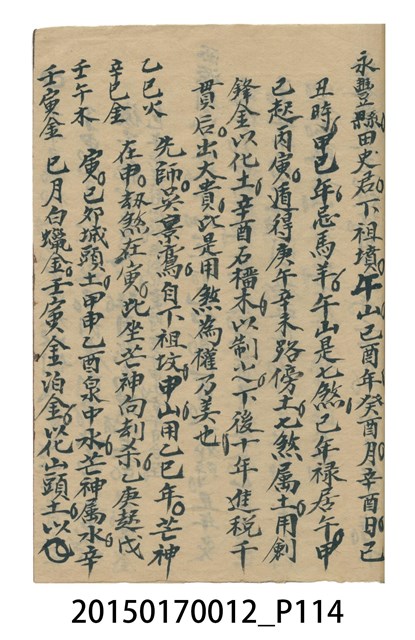 永豐縣田史君下祖墳午山己酉年癸酉月辛酉日己
丑時甲己年忌馬羊午山是七煞己年祿居午甲
己起丙寅遁得庚午辛未路傍土七煞属土用劍
鋒金以化土辛酉石榴木以制之下後十年進税千
貫后出大貴此是用煞為權乃美也
先師吳景鸞自下祖坟申山用乙巳年芒神
在申刼煞在寅此坐芒神向刼杀乙庚起戊
寅己卯城頭土甲申乙酉泉中水芒神属水辛
巳月白蠟金壬寅金泊金以化山頭土以
乙巳火
辛巳金
壬午木
壬寅金
20150170012_P114